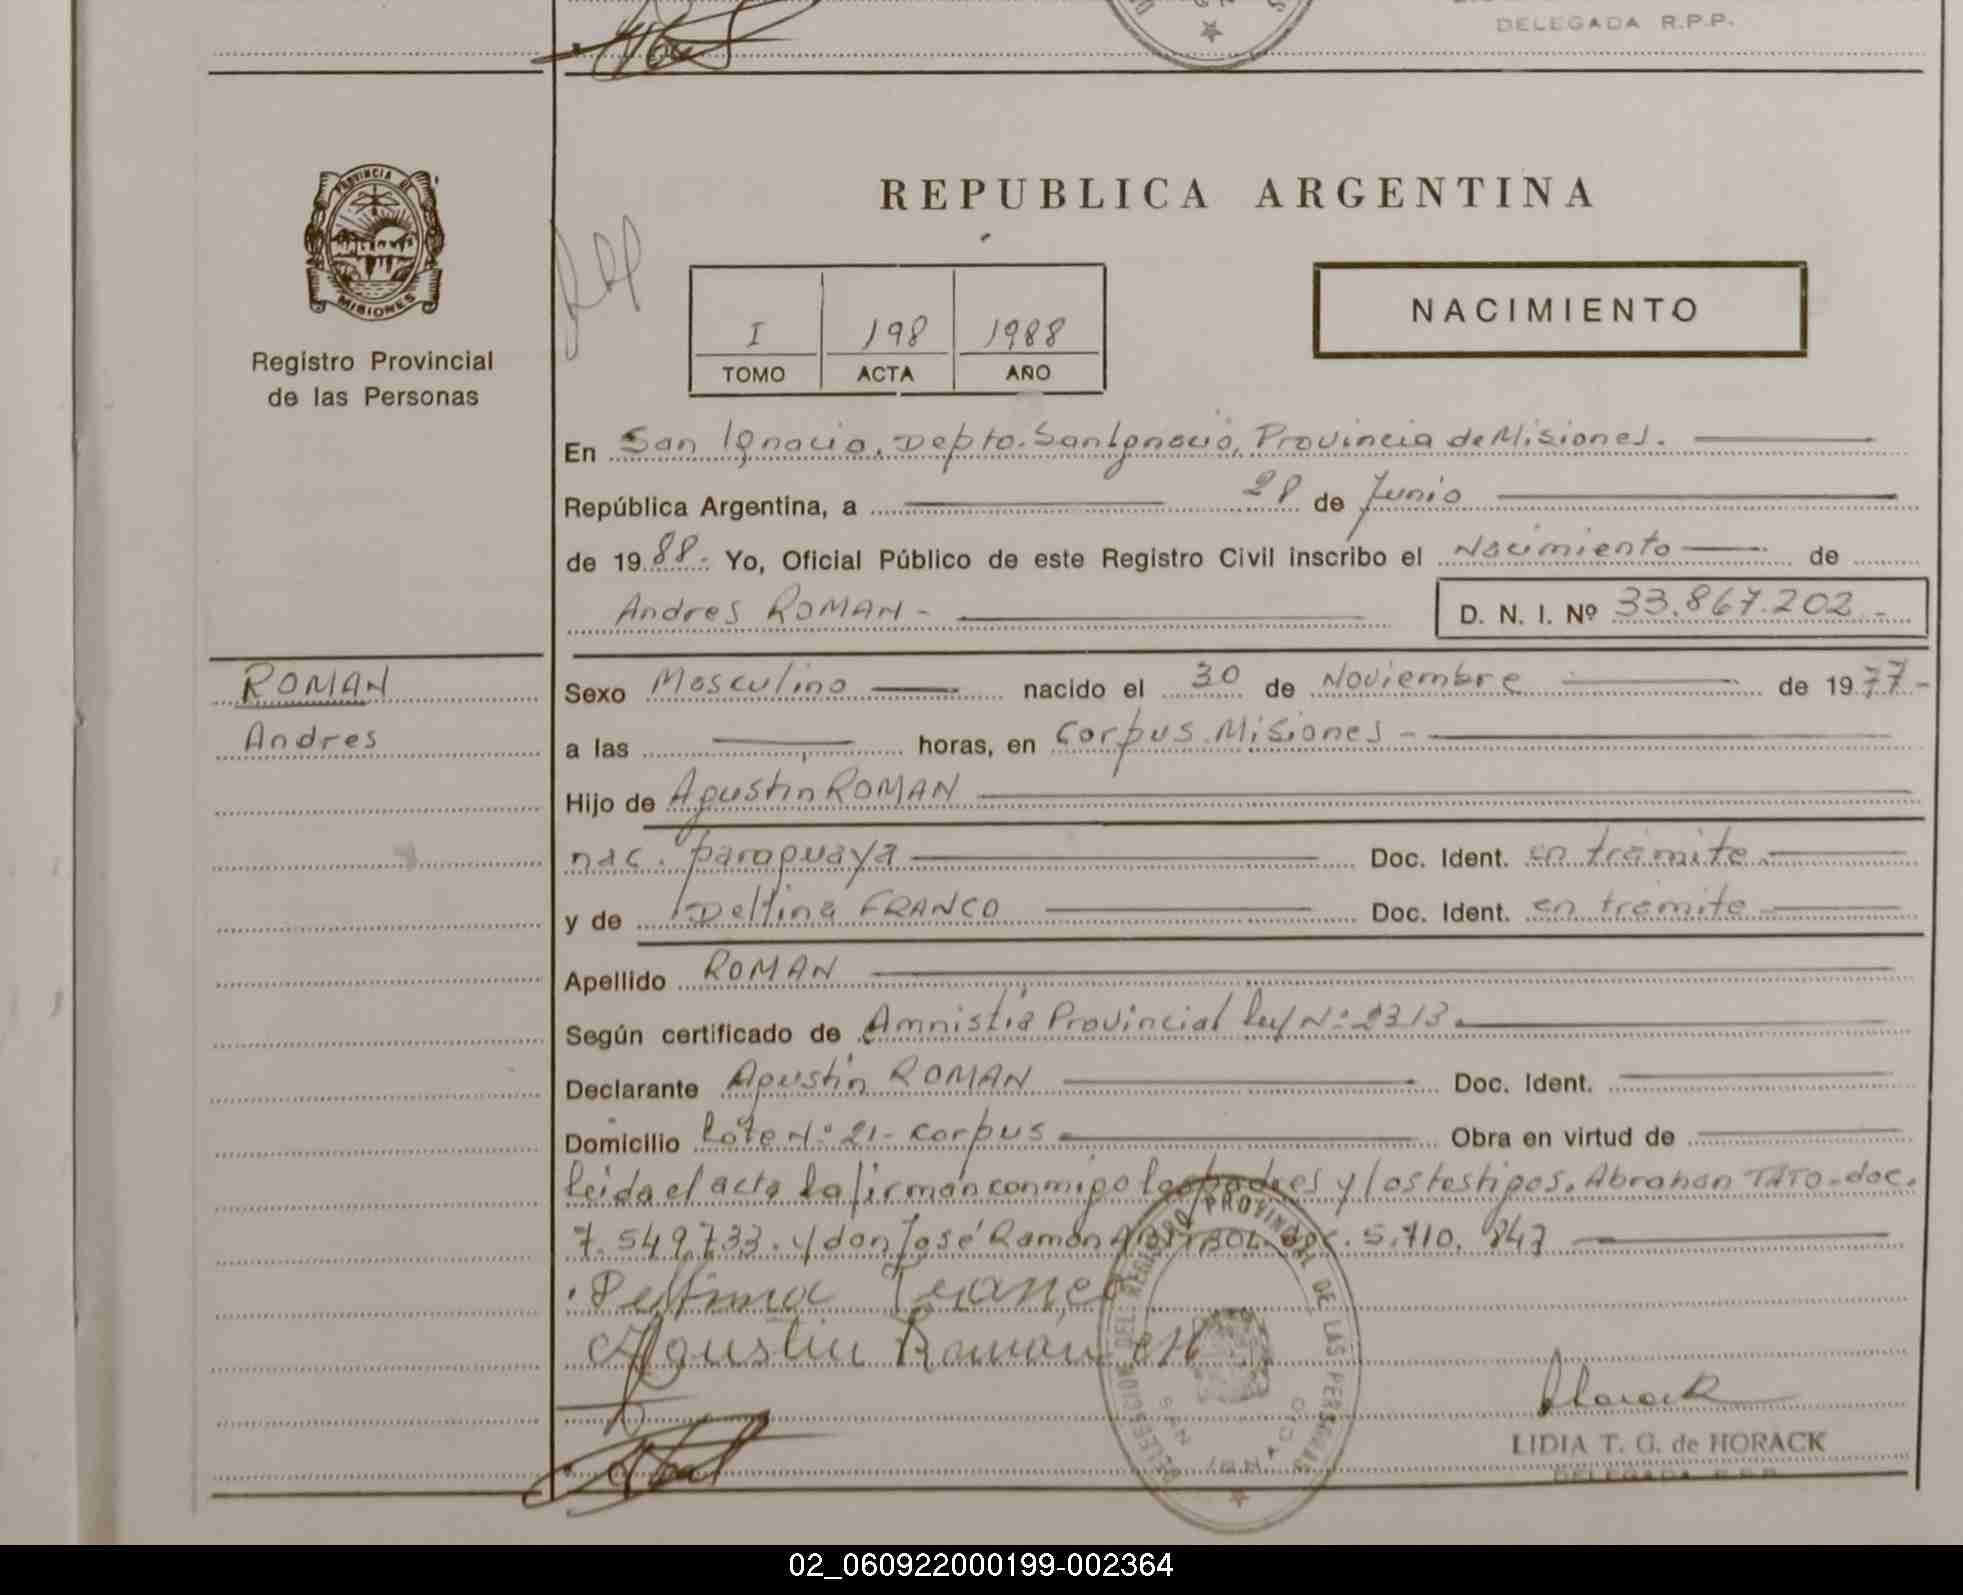 DELEGADA R.P.P.
PROVINCIA DE
MISIONES
Registro Provincial
de las Personas
REPUBLICA ARGENTINA
I 198 1988
TOMO ACTA AÑO
NACIMIENTO
En San Ignacio, Depto. San Ignacio, Provincia de Misiones.
República Argentina, a 28 de Junio
de 1988.- Yo, Oficial Público de este Registro Civil inscribo el Nacimiento de
Andres ROMAN - D. N. I. Nº 33.867.202 -
ROMAN
Andres
Sexo Masculino nacido el 30 de Noviembre de 1977-
a las horas, en Corpus Misiones -
Hijo de Agustin ROMAN
nac. paraguaya Doc. Ident. en tramite
y de Delfina FRANCO Doc. Ident. en tramite
Apellido ROMAN
Según certificado de Amnistia Provincial Ley Nº 2313.
Declarante Agustin ROMAN Doc. Ident.
Domicilio Lote Nº 21- Corpus Obra en virtud de
leida el acta la firman conmigo los padres y los testigos, Abrahan TATO-doc.
7.549.733. y don José Ramon doc. 5.710. 847
Delfina Franco
Agustin Roman
DELEGACION DEL REGISTRO PROVINCIAL DE LAS PERSONAS
SAN IGNACIO
Horack
LIDIA T. G. de HORACK
DELEGADA R.P.P.
02_060922000199-002364